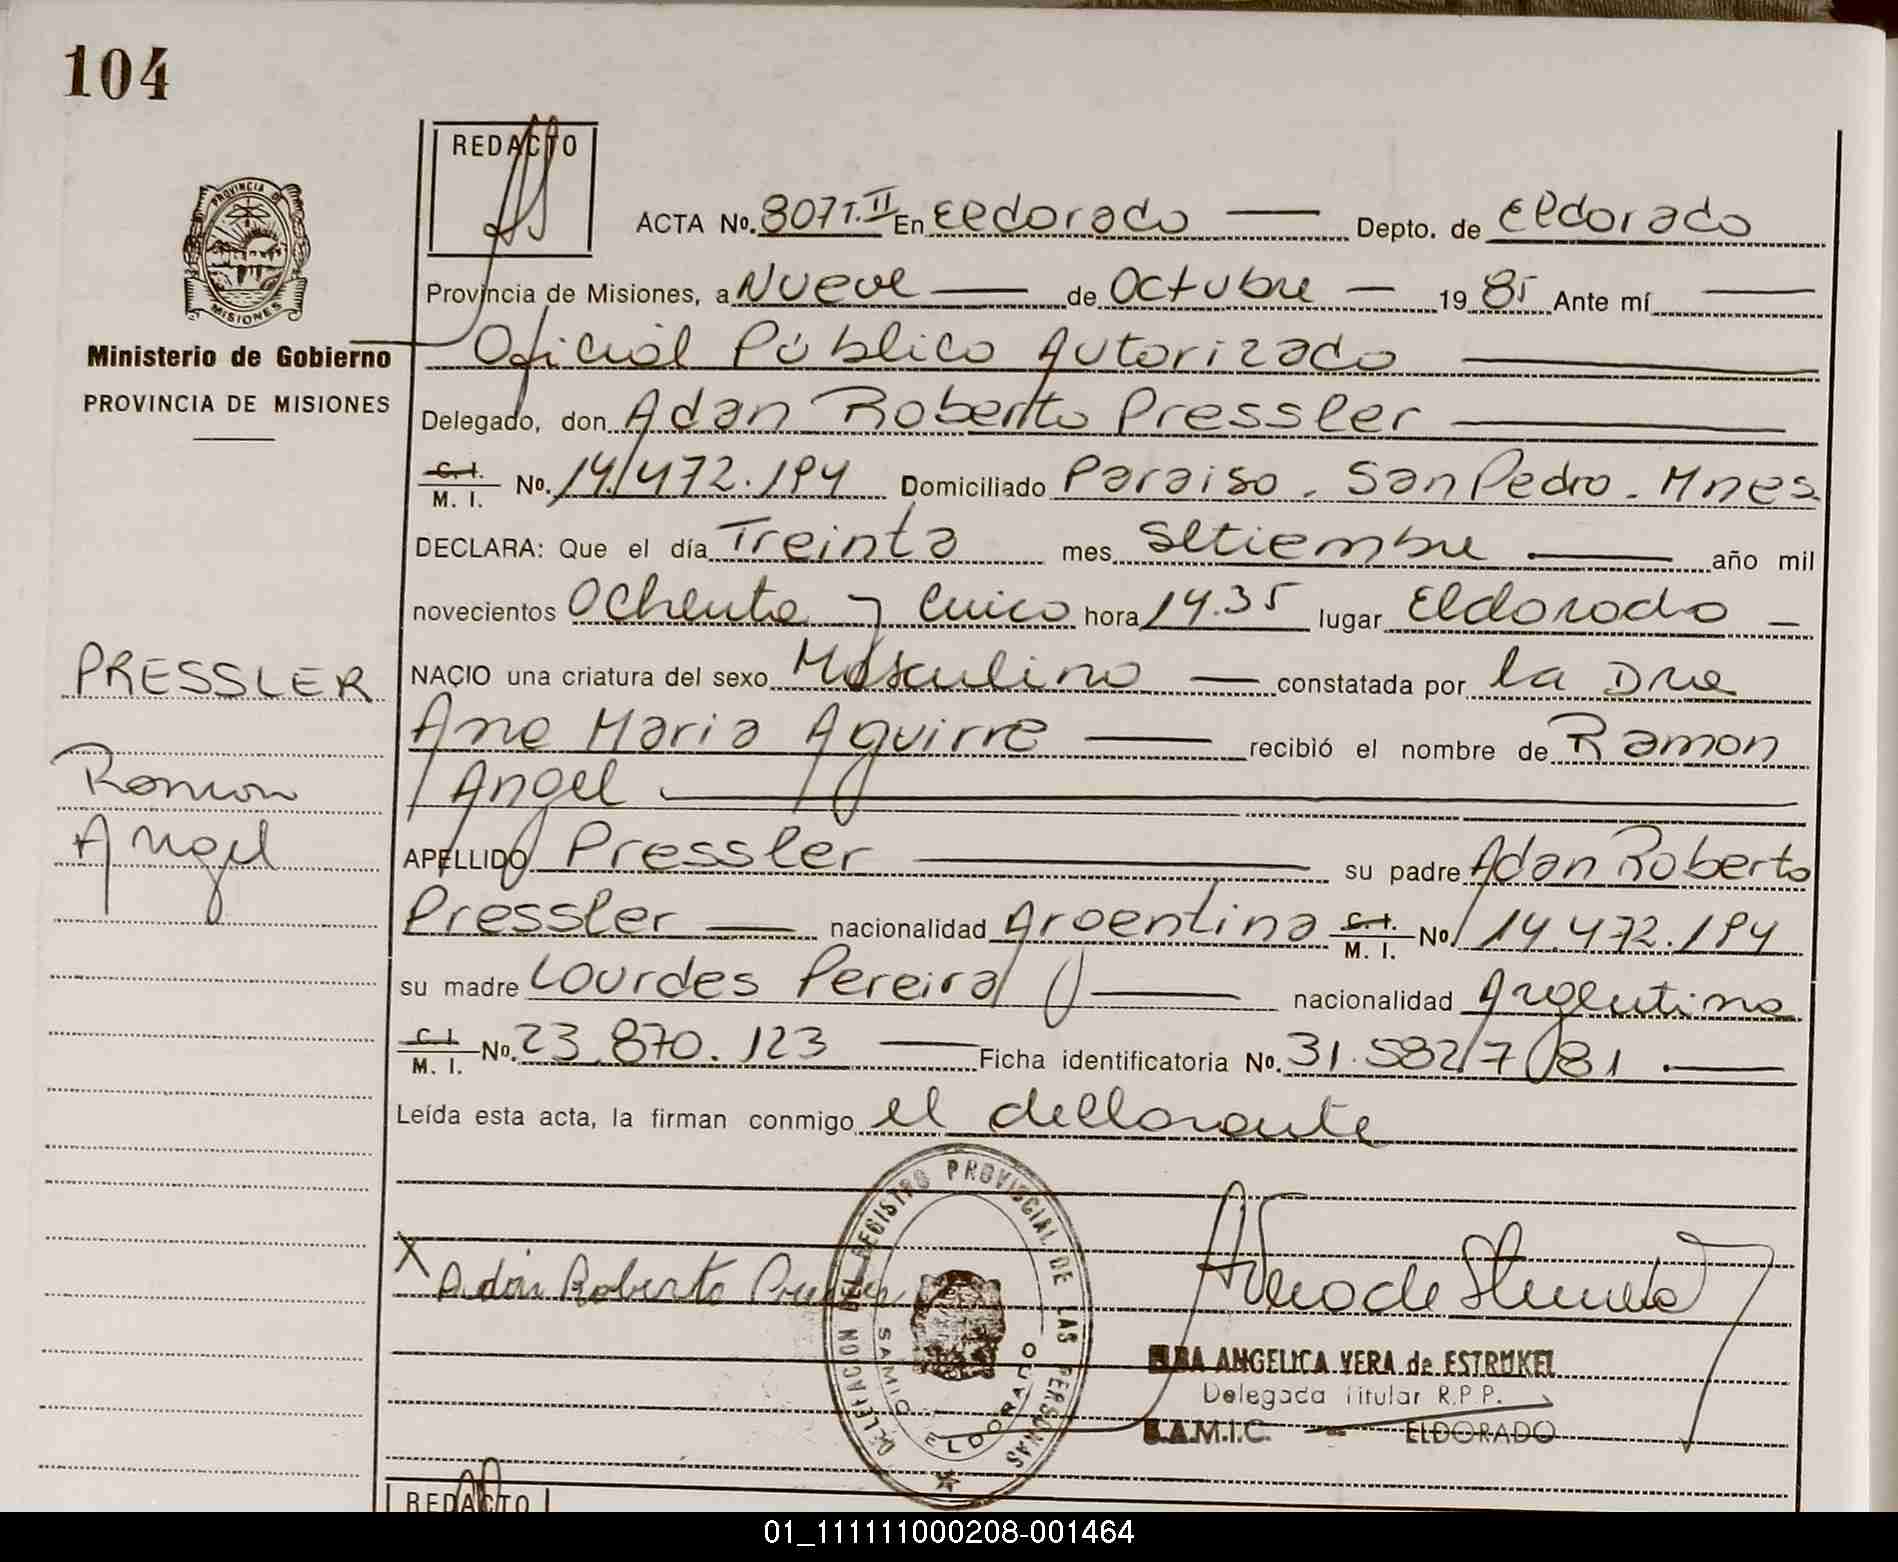 104
REDACTO
PROVINCIA DE MISIONES
Ministerio de Gobierno
PROVINCIA DE MISIONES
ACTA No. 807 T.II En Eldorado Depto. de Eldorado
Provincia de Misiones, a Nueve de Octubre 19 85 Ante mí
Oficial Público Autorizado
Delegado, don Adan Roberto Pressler
C. I. M. I. No. 14.472.194 Domiciliado Paraiso. San Pedro. Mnes.
DECLARA: Que el día Treinta mes Setiembre año mil
novecientos Ochenta y Cinco hora 14.35 lugar Eldorado
NACIO una criatura del sexo Masculino constatada por la Dra
Ana Maria Aguirre recibió el nombre de Ramon
Angel
PRESSLER
Ramon
Angel
APELLIDO Pressler su padre Adan Roberto
Pressler nacionalidad Argentina C. I. M. I. No 14.472.194
su madre Lourdes Pereira nacionalidad Argentina
C. I. M. I. No. 23.870.123 Ficha identificatoria No. 31.582/7/81
Leída esta acta, la firman conmigo el dellorante
X Adán Roberto Pressler
DELEGACION DEL REGISTRO PROVINCIAL DE LAS PERSONAS
SAMIC ELDORADO
ELBA ANGELICA VERA de ESTRUKEL
Delegada Titular R.P.P.
S.A.M.I.C. - ELDORADO
REDACTO
01_111111000208-001464